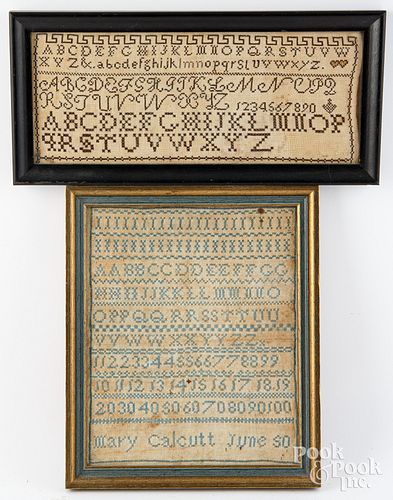 ABCDEFGHIJKLMNOPQRSTUVW
XYZ&.abcdefghijklmnopqrstuvwxyz.
ABCDEFGHIJKLMNOPQ
RSTUVWXYZ 1234567890
ABCDEFGHIJKLMNOP
QRSTUVWXYZ
AABBCCDDEEFFGG
HHIJJKKLLMMNNO
OPPQQRRSSTTUU
112233445566778899
10 11 12 13 14 15 16 17 18 19
20 30 40 50 60 70 80 90 100
mary Calcutt June 50
Pook
& Pook
Inc.